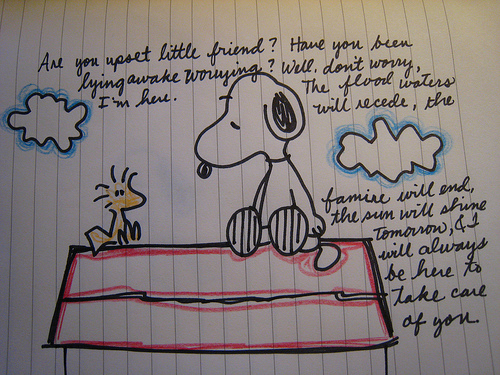 Are you upset little friend? Have you been
lying awake worrying? Well, don't worry,
I'm here. The flood waters
will recede, the
famine will end,
the sun will shine
tomorrow, & I
will always
be here to
take care
of you.